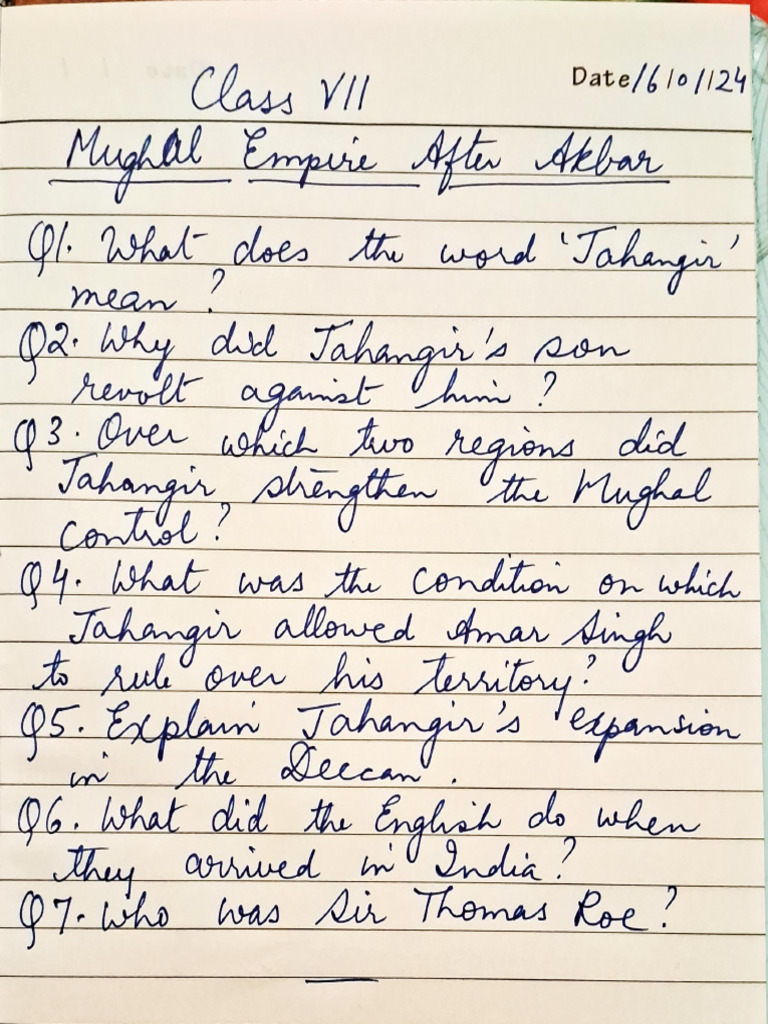 Class VII
Date 16/01/24
Mughal Empire After Akbar
Q1. What does the word 'Jahangir'
mean?
Q2. Why did Jahangir's son
revolt against him?
Q3. Over which two regions did
Jahangir strengthen the Mughal
control?
Q4. What was the condition on which
Jahangir allowed Amar Singh
to rule over his territory?
Q5. Explain Jahangir's expansion
in the Deccan.
Q6. What did the English do when
they arrived in India?
Q7. Who was Sir Thomas Roe?